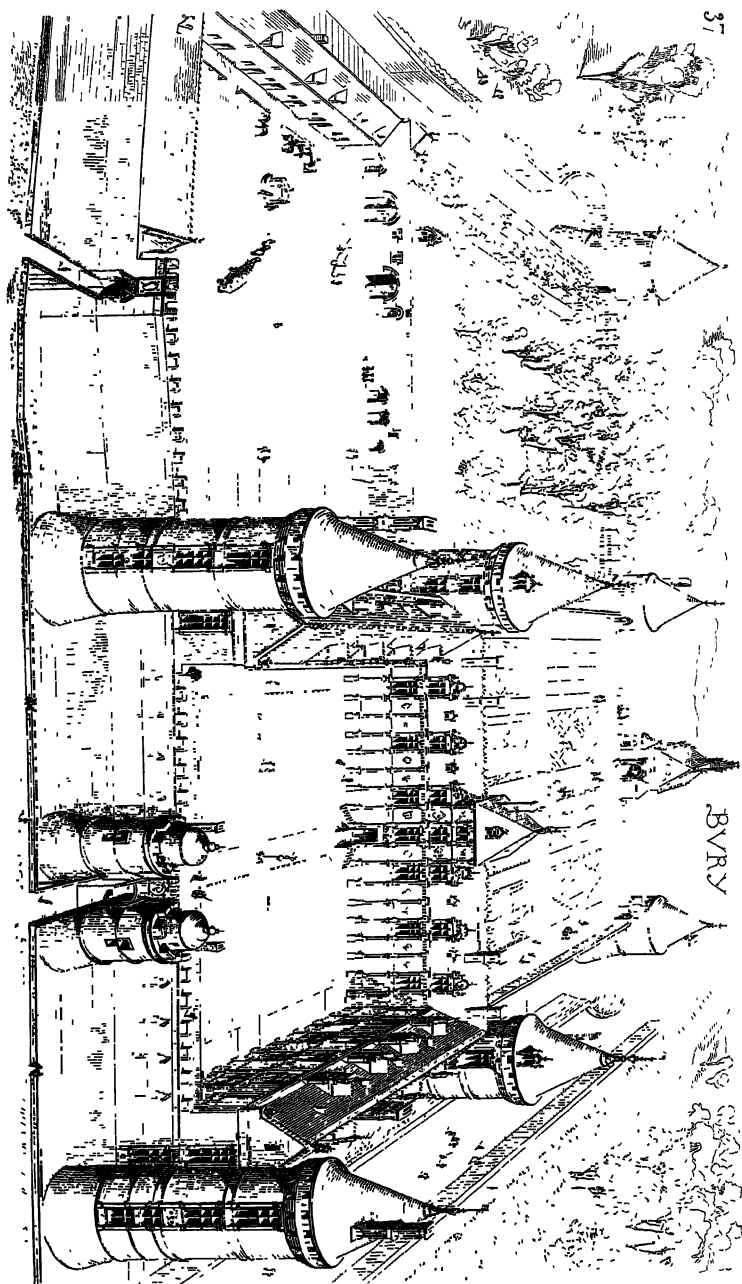 37
BVRY